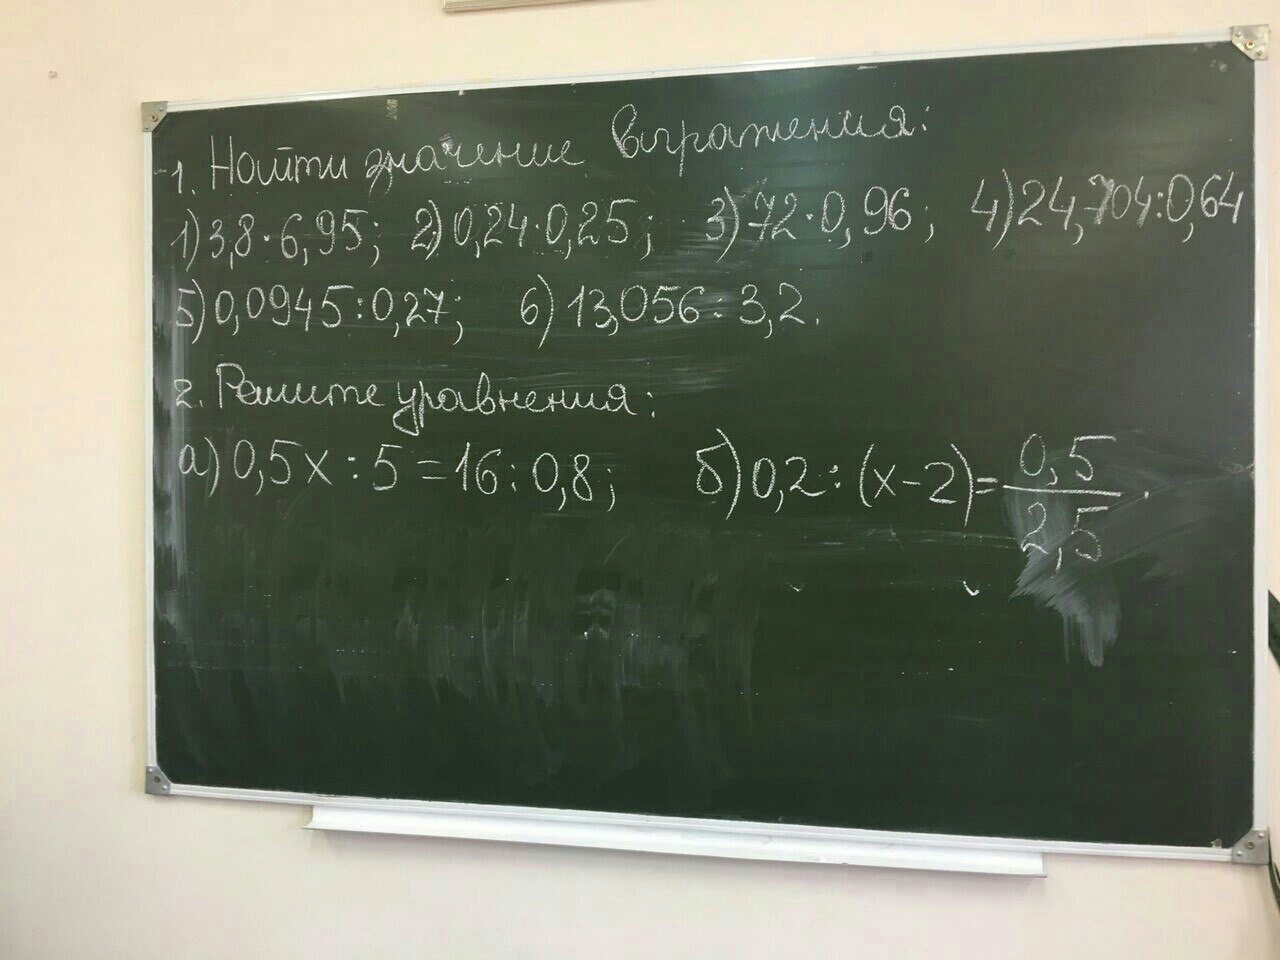 1. Найти значение выражения:
1) 3,8·6,95; 2) 0,24·0,25; 3) 72·0,96; 4) 24,704:0,64
5) 0,0945:0,27; 6) 13,056:3,2.
2. Решите уравнения:
а) 0,5x:5=16:0,8; б) 0,2:(x-2)=0,5/2,5.